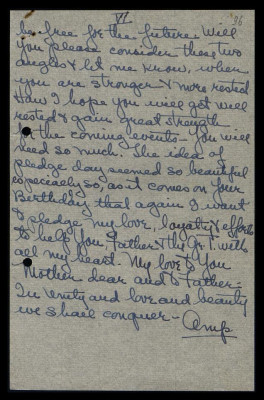 VI
26
be free for the future. Will
you please consider these two
angles & let me know, when
you are stronger & more rested
How I hope you will get well
rested & gain great strength
for the coming events - You will
need so much. The idea of
pledge day seemed so beautiful
especially so, as it comes on your
Birthday that again I want
to pledge my love, loyalty & efforts
to help you, Father & the Gr. F. with
all my heart. My love to You
Mother dear and to Father -
In Unity and love and beauty
we shall conquer -